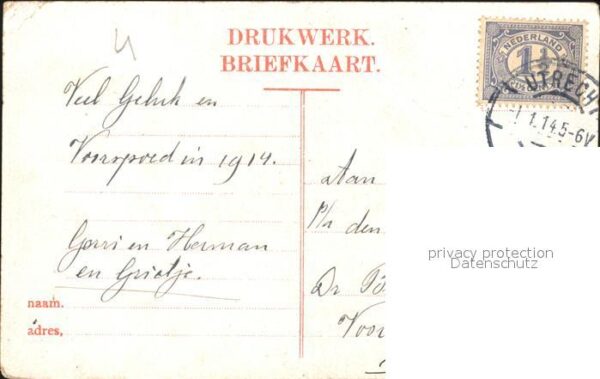 DRUKWERK.
BRIEFKAART.
NEDERLAND
UTRECHT
1.1.14.5-6V
Veel Geluk en
Voorspoed in 1914.
Gerri en Herman
en Grietje.
naam.
adres.
Aan
den
Dr
privacy protection
Datenschutz